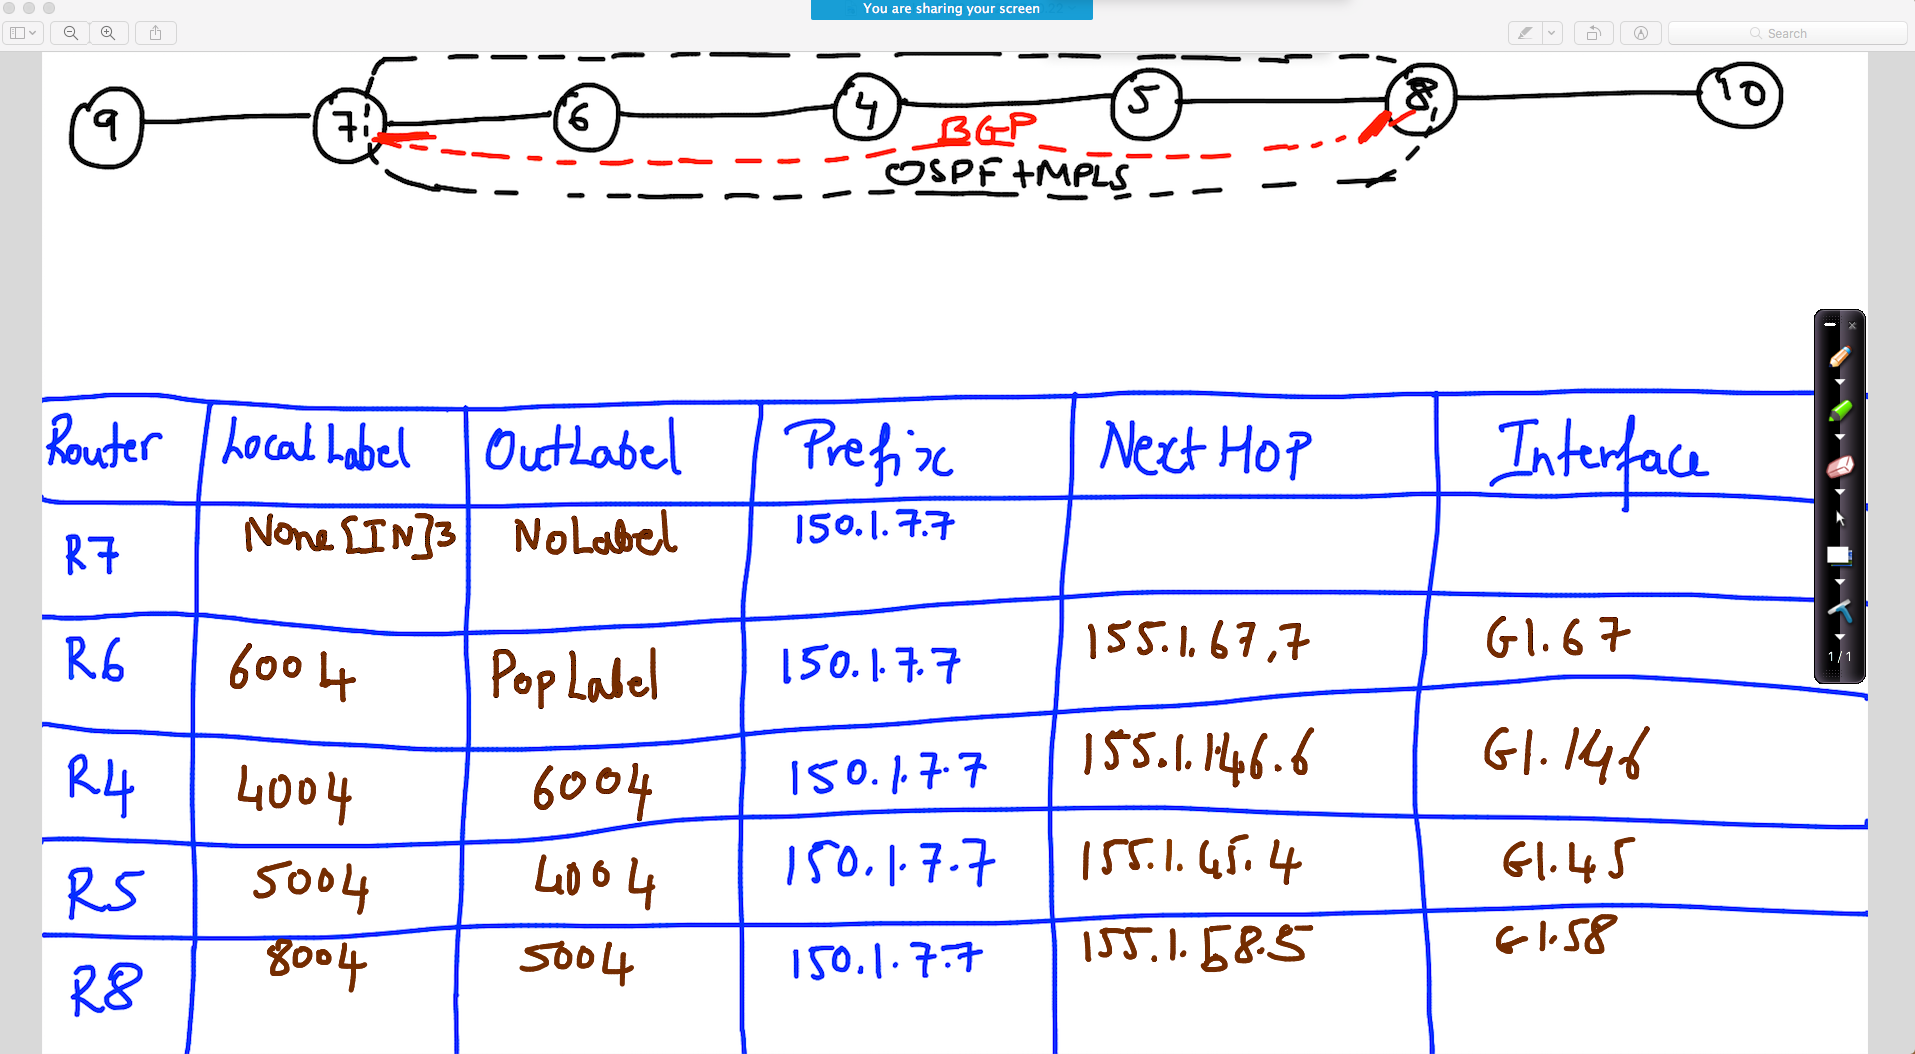 You are sharing your screen
Search
9 7 6 4 5 8 10
BGP
OSPF+MPLS
Router Local Label OutLabel Prefix Next HOP Interface
R7 None [IN]3 NoLabel 150.1.7.7
R6 6004 Pop Label 150.1.7.7 155.1.67.7 G1.67
R4 4004 6004 150.1.7.7 155.1.146.6 G1.146
R5 5004 4004 150.1.7.7 155.1.45.4 G1.45
R8 8004 5004 150.1.7.7 155.1.58.5 G1.58
1/1